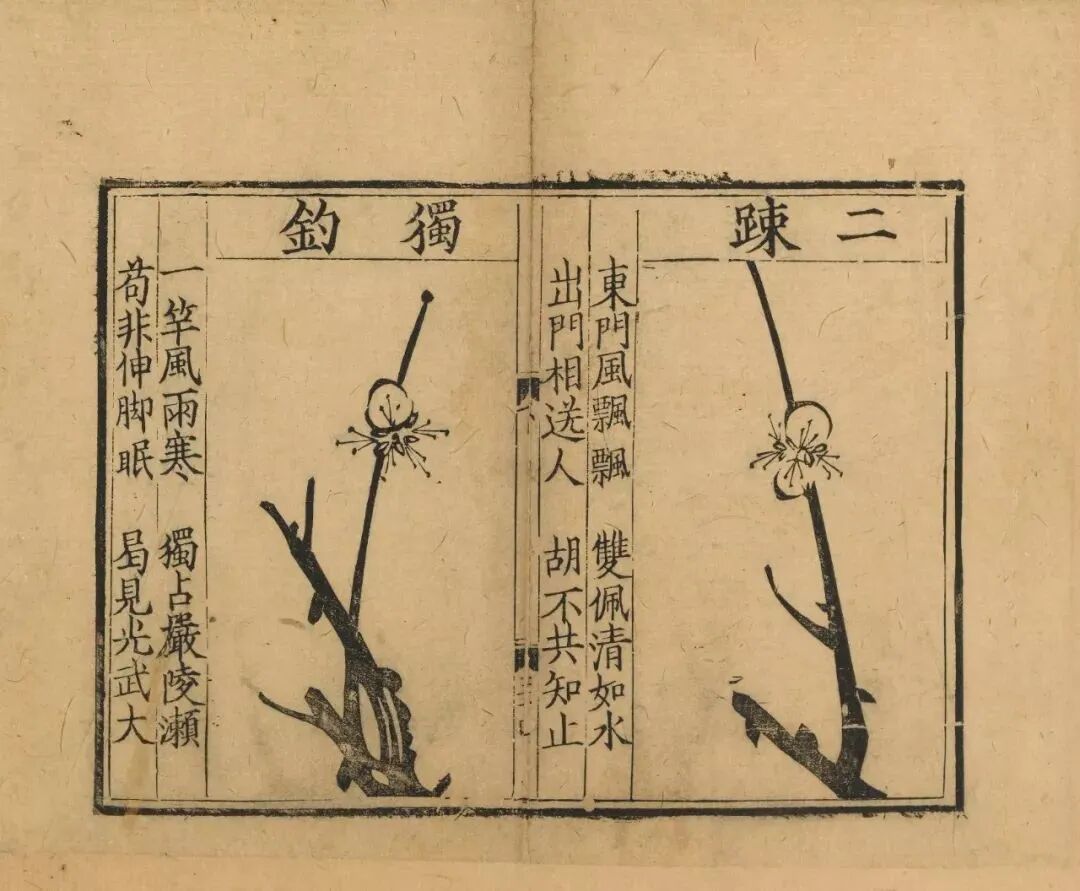 二疎
東門風飄飄　雙佩清如水
出門相送人　胡不共知止
獨釣
一竿風雨寒　獨占嚴陵瀨
苟非伸脚眠　曷見光武大